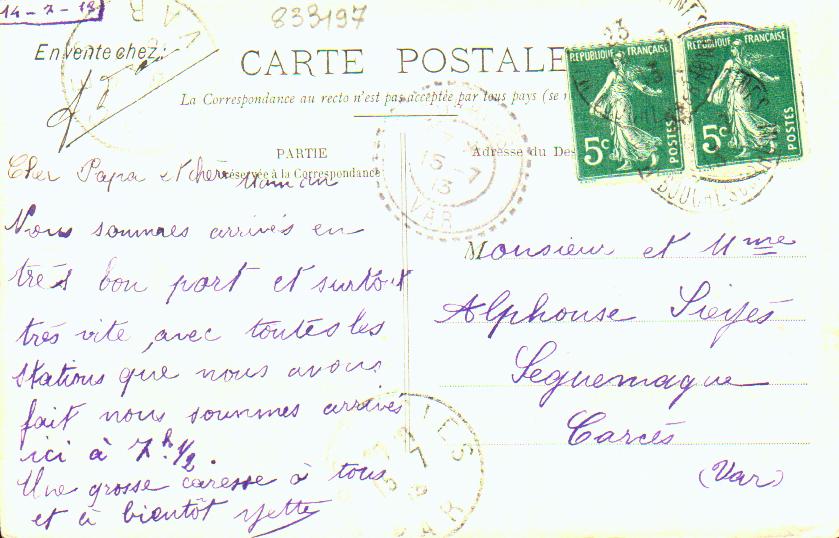 14-7-13
833197
En vente chez:
CARTE POSTALE
La Correspondance au recto n'est pas acceptée par tous pays (se
PARTIE
réservée à la Correspondance
Adresse du Des
RÉPUBLIQUE FRANÇAISE
5c
POSTES
RÉPUBLIQUE FRANÇAISE
5c
POSTES
15-7
13
VAR
Cher Papa et chère Maman
Nous sommes arrivés en
très bon port et surtout
très vite, avec toutes les
stations que nous avons
fait nous sommes arrivés
ici à 7h. 1/2.
Une grosse caresse à tous
et à bientôt Yette
Monsieur et Mme
Alphonse Sieyès
Carcès
(Var)